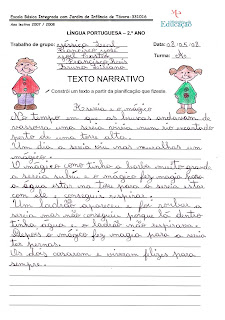 Escola Básica Integrada com Jardim de Infância de Tórrozo 331016
Ano lectivo 2007 / 2008
Educação
LÍNGUA PORTUGUESA – 2.º ANO
Trabalho de grupo:
Data: 08/05/08
Turma:
TEXTO NARRATIVO
Constrói um texto a partir da planificação que fizeste.
A sereia e o mágico
No tempo em que as bruxas andavam de
vassoura uma sereia vivia num rio encantado
perto de uma tota.
Um dia a sereia viu nas muralhas um
mágico.
O mágico como tinha a barba muito grande
a sereia subiu e o mágico fez magia para
a água estar na tota para a sereia estar
com ele e conseguir respirar.
Um ladrão apareceu e foi roubar a
sereia mas não conseguiu porque lá dentro
tinha água e o ladrão não respirava e
depois o mágico fez magia para a sereia
ter pernas.
Os dois casaram e viveram felizes para
sempre.